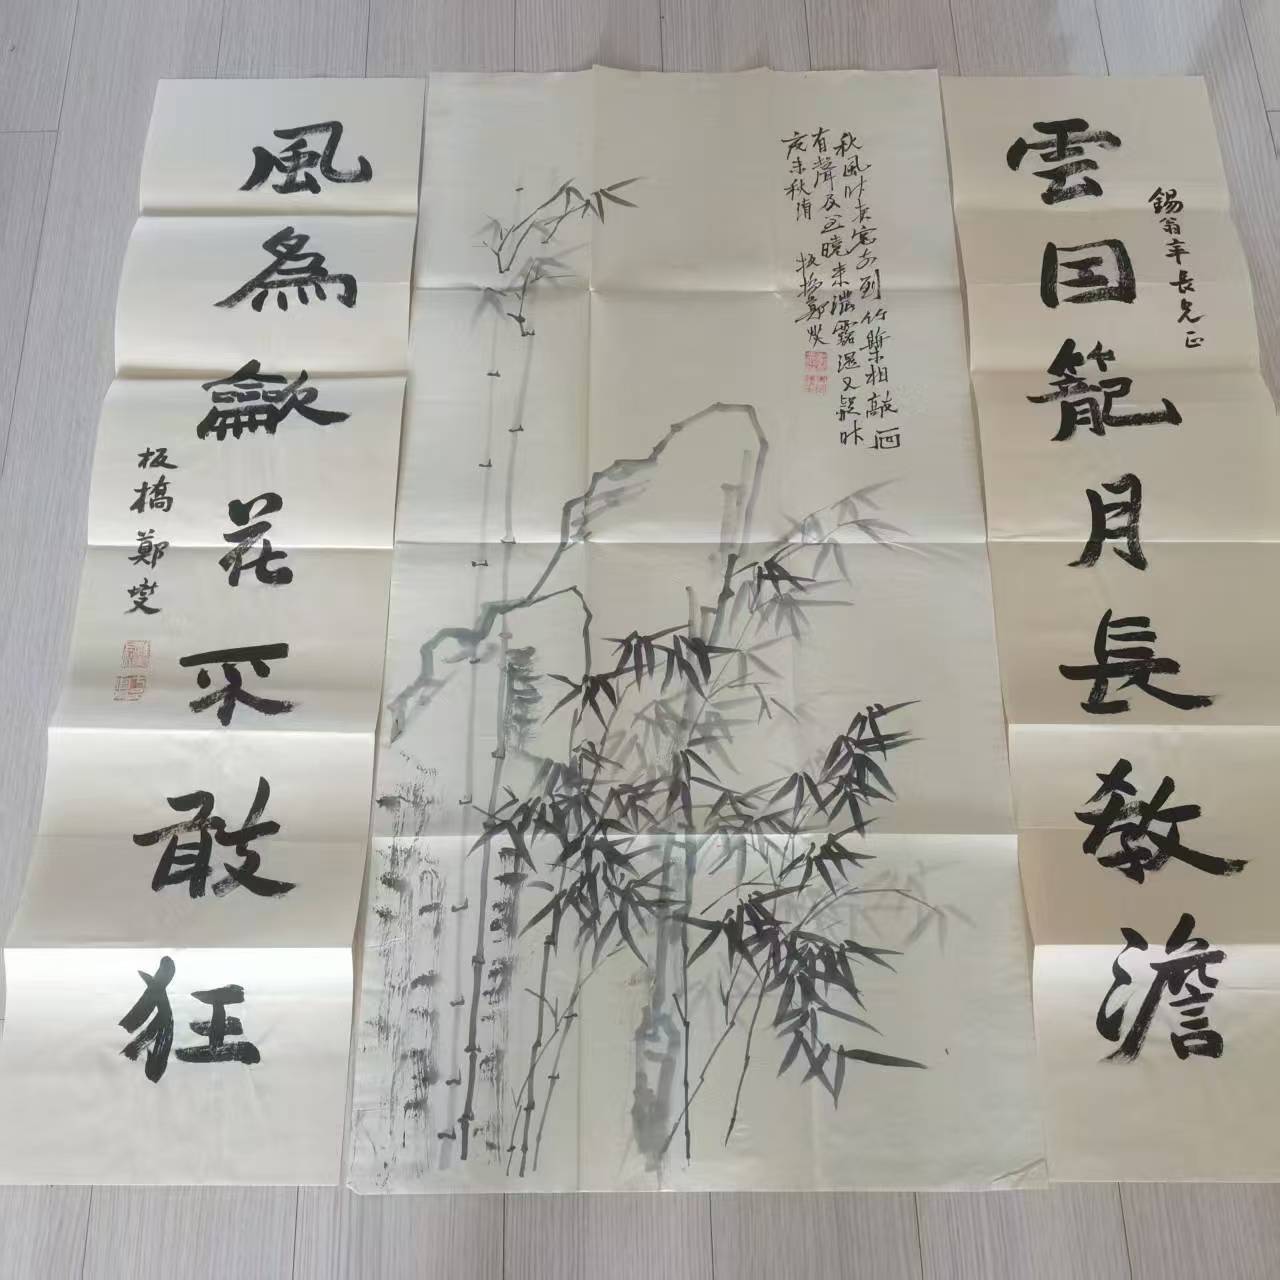 雲囙籠月長教澹
錫翁年長兄正
秋風昨夜窓前到竹葉相敲石
有聲及至曉来濃露濕又疑昨
夜未秋清 板橋鄭燮
風為龡花不敢狂
板橋鄭燮